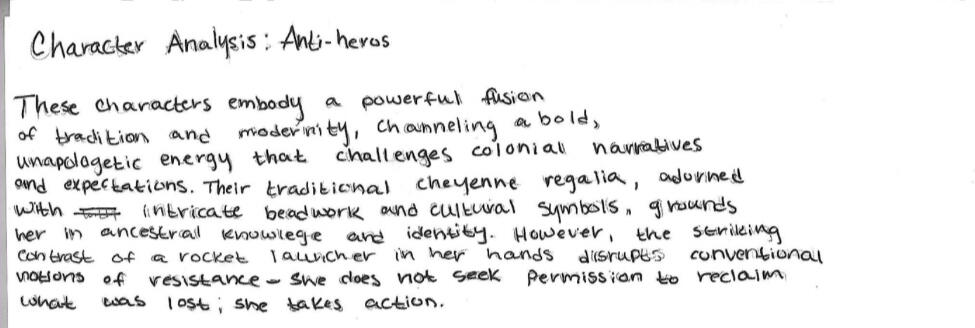 Character Analysis: Anti-heros
These characters embody a powerful fusion
of tradition and modernity, channeling a bold,
unapologetic energy that challenges colonial narratives
and expectations. Their traditional cheyenne regalia, adorned
with intricate beadwork and cultural symbols, grounds
her in ancestral knowlege and identity. However, the striking
contrast of a rocket launcher in her hands disrupts conventional
notions of resistance - she does not seek permission to reclaim
what was lost; she takes action.